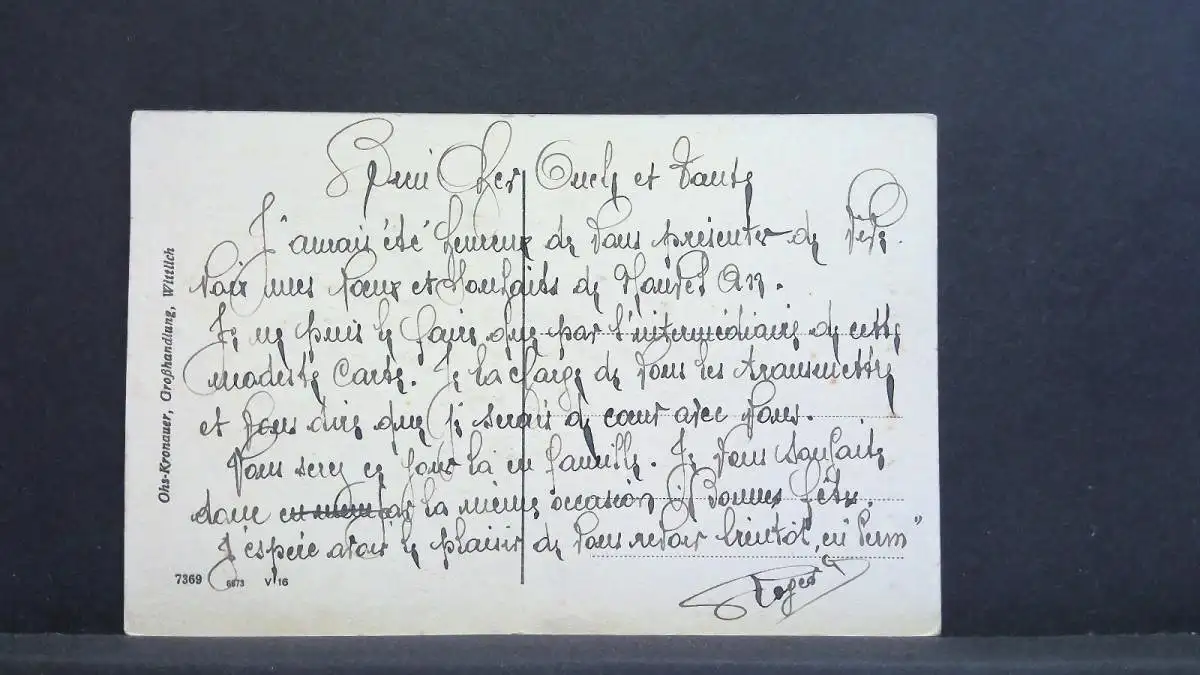 Cher Oncle et Tante
J'aurais été heureux de vous présenter de
voix mes vœux et souhaits de Nouvel An.
Je ne puis le faire que par l'intermédiaire de cette
modeste carte. Je la charge de vous les transmettre
et vous dire que je serais de cœur avec vous.
Vous serez ce jour là en famille. Je vous souhaite
donc par la même occasion Bonnes fêtes.
J'espère avoir le plaisir de vous revoir bientôt, en "Perm"
Roger
Ohs-Kronauer, Großhandlung, Wittlich
7369 6673 V/16